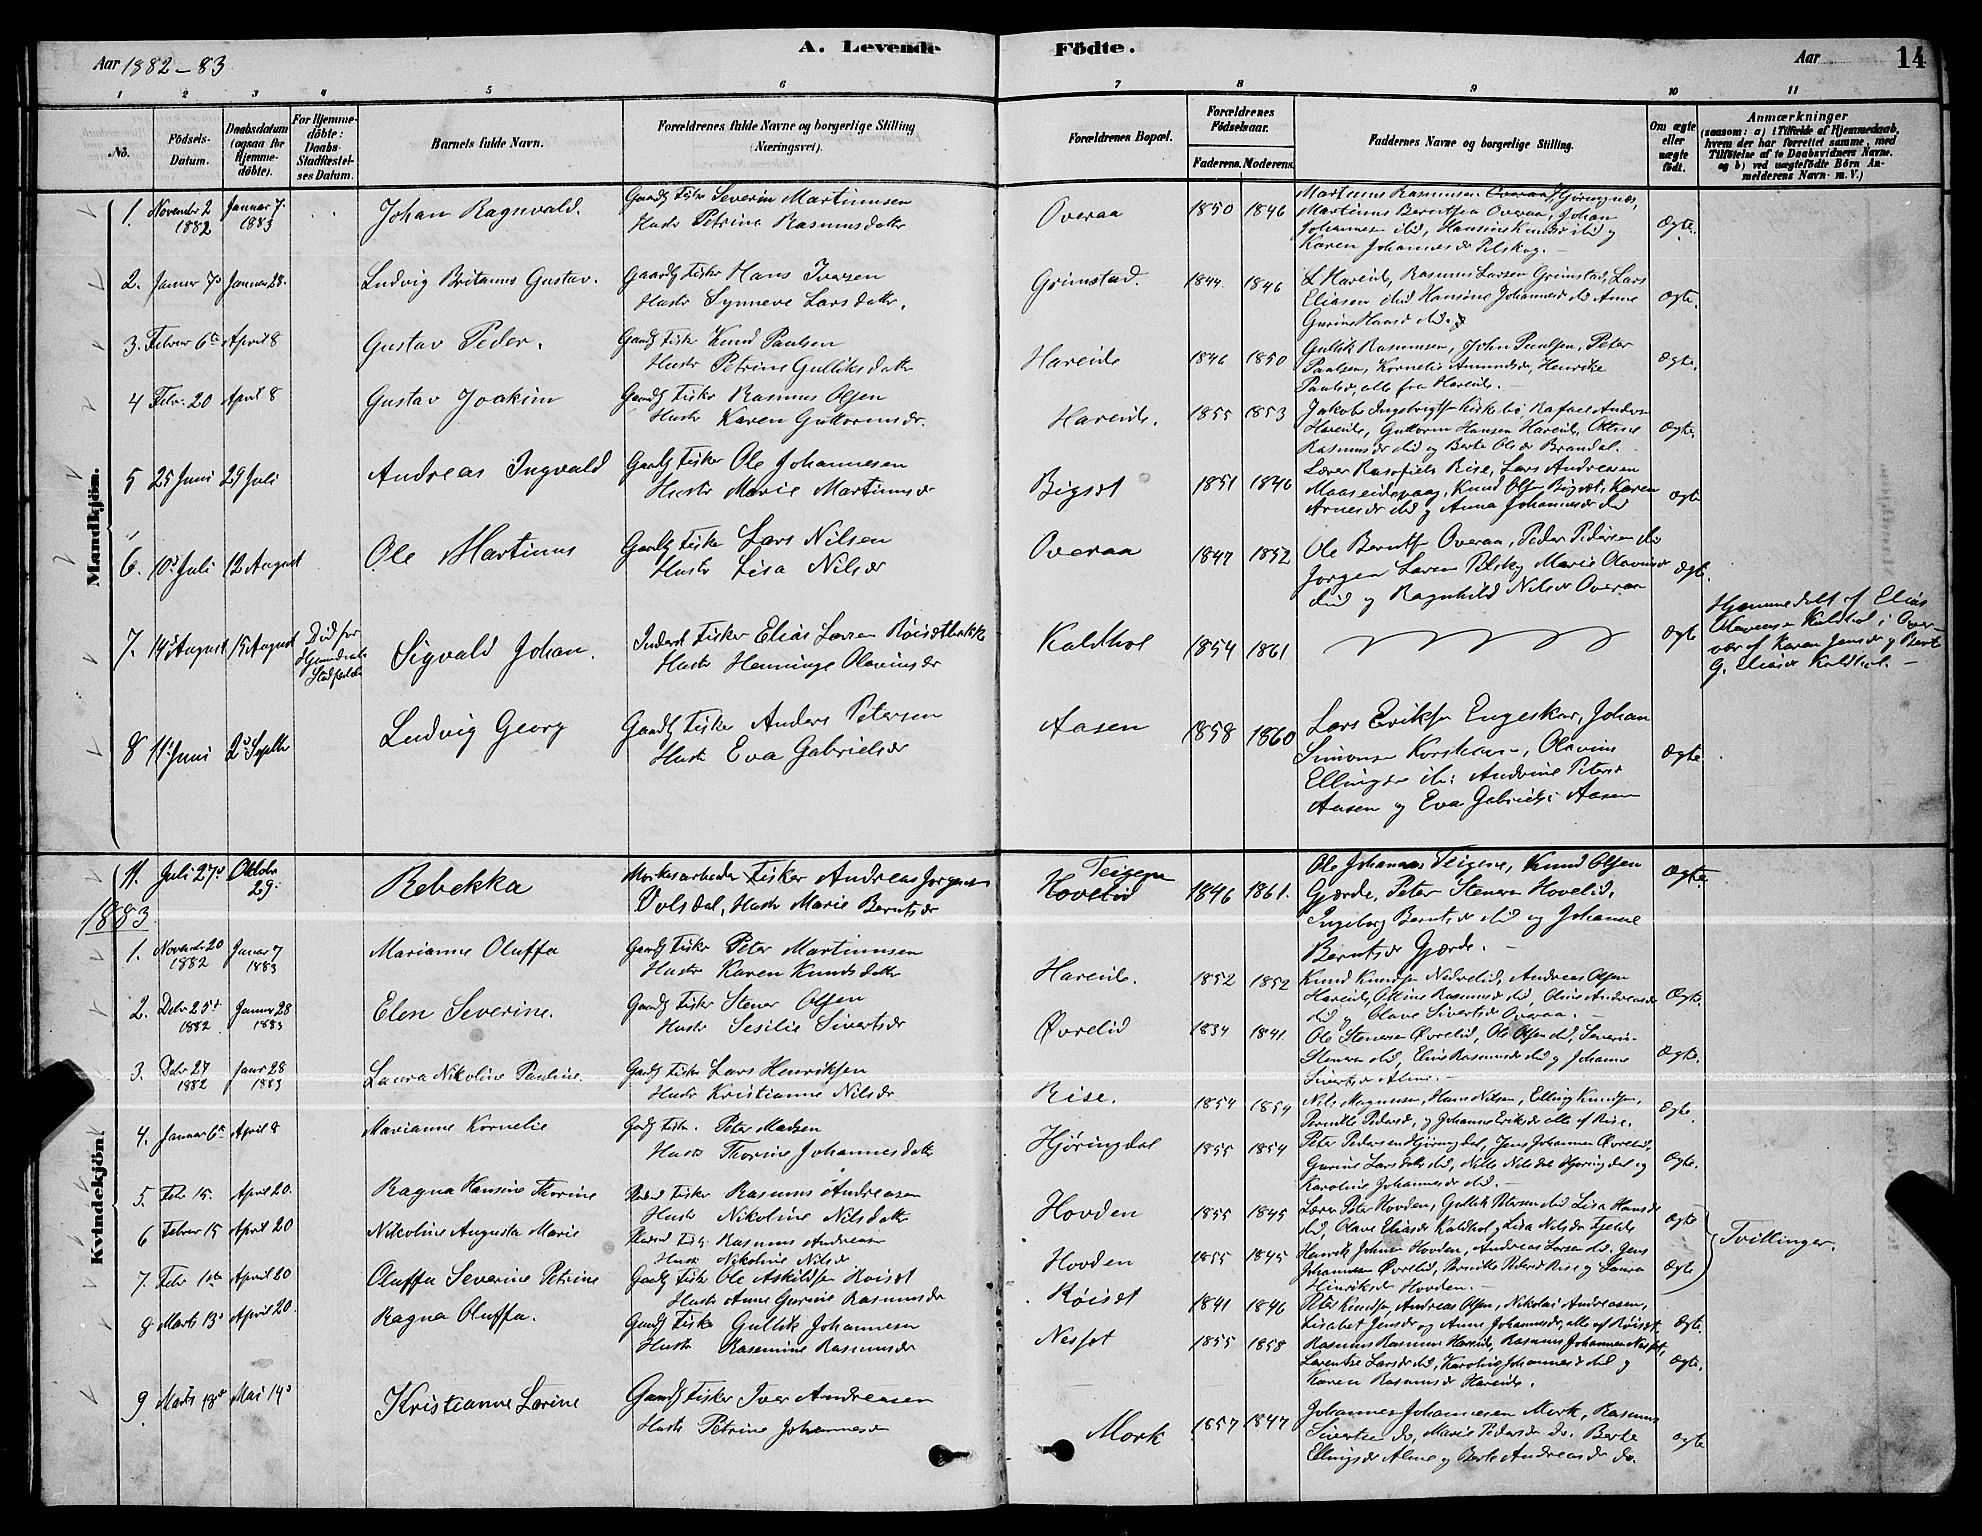 A. Levende Födte.
Aar 1882-83
Aar
14
1 2 3 4 5 6 7 8 9 10 11
No.
Födsels-Datum.
Daabsdatum (ogsaa for Hjemmedöbte).
For Hjemmedöbte: Daabs-Stadfæstelses Datum.
Barnets fulde Navn.
Forældrenes fulde Navne og borgerlige Stilling (Næringsvei).
Forældrenes Bopæl.
Forældrenes Födselsaar.
Faderens. Moderens.
Faddernes Navne og borgerlige Stilling.
Om ægte eller uægte födt.
Anmærkninger
(saasom: a) i Tilfælde af Hjemmedaab, hvem der har forrettet samme, med Tilföielse af to Daabsvidners Navne, og b) ved uægtefödte Börn Anmelderens Navn m. V.)
Mandkjön.
1. Novembr 2 1882 Januar 7. 1883 Johan Ragnvald. Gaardb Fisker Severin Martinusen
Hustr Petrine Rasmusdattr Overaa 1850 1846 Martinus Rasmusen Hjøringnæs,
Martinus Berntsen Overaa, Johan
Karen Johannesdr Pilskog. Ægte.
2. Januar 7d Januar 28. Ludvig Gustav. Gaardb Fisker Hans Iversen
Hustr Synneve Larsdattr. Grimstad. 1844 1846 L Hareide, Rasmus Larsen Grimstad, Lars
Eliasen ibid Hansine Johannesdr ibid Anne Ægte.
3. Februar 6te April 8 Gustav Peder. Gaardb Fisker Knud Paulsen
Hustr Petrine Gulliksdattr Hareide 1846 1850 Gullik Rasmusen, John Paulsen, Peter
Paulsen, Kornelie Amundsdr, Henrike
Paulsdr, alle fra Hareide. Ægte.
4 Febr. 20 April 8 Gustav Joakim Gaardb Fisker Rasmus Olsen
Hustr Karen Guttormsdr. Hareide. 1855 1853 Jakob Ingebrigts
Hareide, Guttorm Hansen Hareide, Oline
Rasmusdr ibid og Berte Olsdr Brandal. Ægte.
5 25 Juni 29 Juli Andreas Ingvald Gaardb Fisker Ole Johannesen
Hustr Marie Martinusdr Bigset 1851 1846 Lars Andreasen
Knud Olsen Bigset, Karen
Arnesdr ibid og Anna Johannesdr ibid Ægte
6. 10d Juli 12 August Ole Martinus Gaardb Fisker Lars Nilsen
Hustr Lisa Nilsdr Overaa 1847 1852 Ole Berntsen Overaa, Peder Pedersen ibid
Jørgen Larsen Pilskog Marie
ibid og Ragnhild Nilsdr Overaa Ægte.
7. 14d August 15 August Død før
Stadfæstelse Sigvald Johan. Inderst Fisker Elias Larsen Røisetbakk
Hustr Henninge Olavinusdr Kaldhol 1854 1861 Ægte Hjemmedøbt af Elias
Kaldhol i Overvær af Karen Jensdr og Berte
G. Eliasdr Kaldhol.
8 11t Juni 2d Septbr Ludvig Georg Gaardb Fisker Anders Petersen
Hustr Eva Gabrielsdr Aasen 1858 1860 Lars Eriksen Engeskar, Johan
Simonsen Olavius
Andrine Petersdr
Aasen og Eva Gabrielsdr Aasen Ægte
Kvindekjön.
11. Juli 27d Oktobr 29. Rebekka Fisker Andreas Jørgensen
Volsdal, Hustr Marie Berntsdr Teigene
Hovelid 1846 1861. Ole Johannes Teigene, Knud Olsen
Gjærde, Peter Stenersen Hovelid,
Ingeborg Berntsdr ibid og Johanne
Berntsdr Gjærde. Ægte
1883
1. Novembr 20 1882 Januar 7 1883 Marianne Oluffa Gaardb Fisker Peter Martinusen
Hustr Karen Knudsdattr Hareide. 1852 1852 Knud Knudsen Nedrelid, Andreas Olsen
Hareide, Oline Rasmusdr ibid, Oline Andreasdr
ibid og Olave Sivertsdr Overaa. Ægte.
2. Debr 25d 1882 Januar 28 1883 Elen Severine. Gaardb Fisker Stener Olsen
Hustr Sesilie Sivertsdr Øvrelid 1834 1841. Ole Stenersen Øvrelid, Ole Olsen ibid, Severin
Stenersen ibid, Eline Rasmusdr ibid og Johanne
Sivertsdr Alme. Ægte.
3. Debr 27 1882 Janr 28 1883 Laura Nikoline Pauline. Gaardb Fisker Lars Henriksen
Hustr Kristianne Nilsdr. Rise. 1854 1854 Nils Magnusen, Hans Nilsen, Elling Knudsen,
Pernille Pedersdr, og Johanne Eriksdr alle af Rise. Ægte.
4. Januar 6te April 8 Marianne Kornelie Gaardb Fisker. Peter Madsen
Hustr Thorine Johannesdattr Hjøringdal 1855 1854 Peter Pedersen Hjøringdal, Jens Johannesen Øvrelid,
Gurine Larsdattr ibid, Nille Nilsdr Hjøringdal og
Karoline Johannesdr ibid. Ægte.
5. Febr 15. April 20. Ragna Hansine Thorine Fisker Rasmus Andreasen
Hustr Nikoline Nilsdattr Hovden 1855 1845 Peter Hovden, Gullik Petersen ibid Lisa Hansdr
ibid, Olave Eliasdr Kaldhol og Lisa Nilsdr Ægte
6 Februar 15 April 20 Nikoline Augusta Marie Rasmus Andreasen
Hustr Nikoline Nilsdr Hovden 1855 1845 Henrik Johnsen Hovden, Andreas Larsen ibid. Jens
Johannesen Øvrelid, Pernille Pedersdr Rise og Laura
Henriksdr Hovden. Ægte
Tvillinger.
7. Febr April 20 Oluffa Severine Petrine Gaardb Fisker Ole Askildsen Røiset
Hustr Anne Gurine Rasmusdr Røiset 1841 1846 Peter Knudsen, Andreas Olsen, Nikolai Andreasen,
Lisabet Jensdr og Anne Johannesdr, alle af Røiset. Ægte.
8 Marts 13d April 20. Ragna Oluffa. Gaardb Fisker Gullik Johannesen
Hustr Rasmine Rasmusdr Nesset 1855 1858 Rasmus Rasmusen Hareide, Rasmus Johannesen Nesset,
Larsdr ibid, Karoline Johannesdr ibid og
Karen Rasmusdr Hareide. Ægte.
9 Marts 18d Mai 14d Kristianne Larine Gaardb Fisker Iver Andreasen
Hustr Petrine Johannesdr Mork 1857 1847 Johannes Johannesen Mork, Rasmus
Sivertsen do, Marie Pedersdr do. Berte
Ellingsdr Alme og Berte Andreasdr do. Ægte